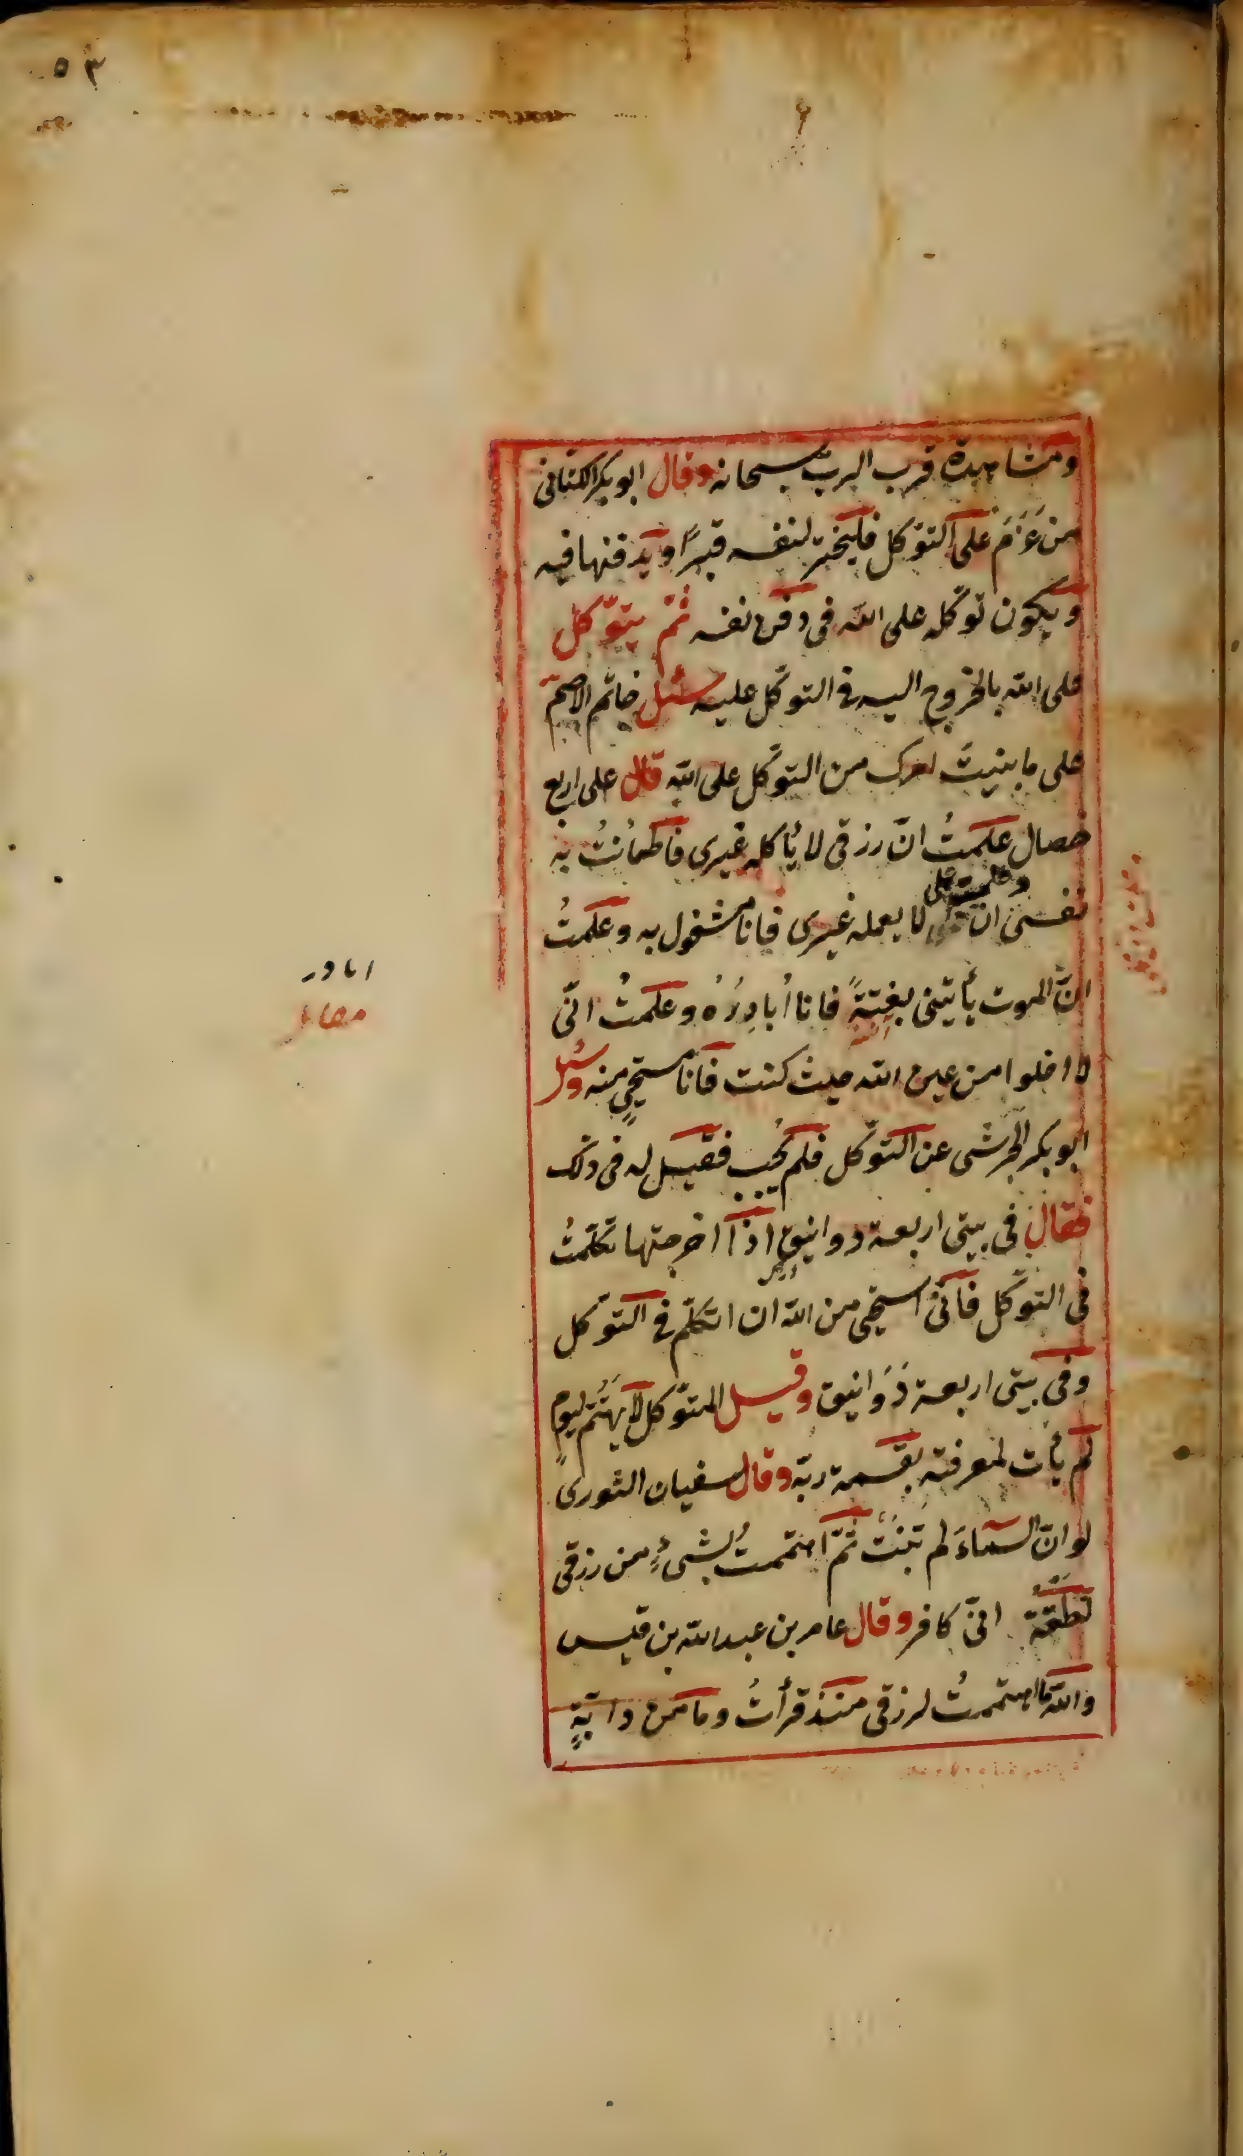 ٥٣
ومشاهدة قرب الرب سبحانه وقال ابو بكر الكتانى
من عَزَمَ على التوكل فليخبر لنفسه قبرًا ويدفنها فيه
ويكون توكّله على الله فى دفن نفسه ثمّ يتوكّل
على الله بالخروج اليه فى التوكّل عليه سئل خاتم الاصمّ
على ما بنيتَ امرك من التوكّل على الله قال على اربع
خصال علمتُ انّ رزقى لا يأكله غيرى فاطمأنتُ به
وعلمت
نفسى ان عملى لا يعمله غيرى فانا مشغول به وعلمتُ
انّ الموت يأتينى بغتةً فانا اُبادِرُهُ وعلمتُ انّى
لا اخلوا من عين الله حيث كنت فانا مستحيٍ منه وسئل
ابو بكر الجرشى عن التوكّل فلم يُجِب فقيل له فى ذلك
فقال فى بيتى اربعة دوانيق اذا اخرجتها تكلّمتُ
فى التوكّل فانّى استحيى من الله ان اتكلّم فى التوكّل
وفى بيتى اربعة دَوَانيق وقيل المتوكّل لا يَهتَمّ ليومٍ
لم يأت لمعرفته بقسمة ربّه وقال سفيان الثورى
لو انّ السماءَ لم تبنتُ ثمّ اهتممتُ بشىءٍ من رزقى
انّى كافر وقال عامر بن عبد الله بن قيس
والله ما اهتممتُ لرزقى منذ قرأتُ وما من دابّةٍ
ابادر